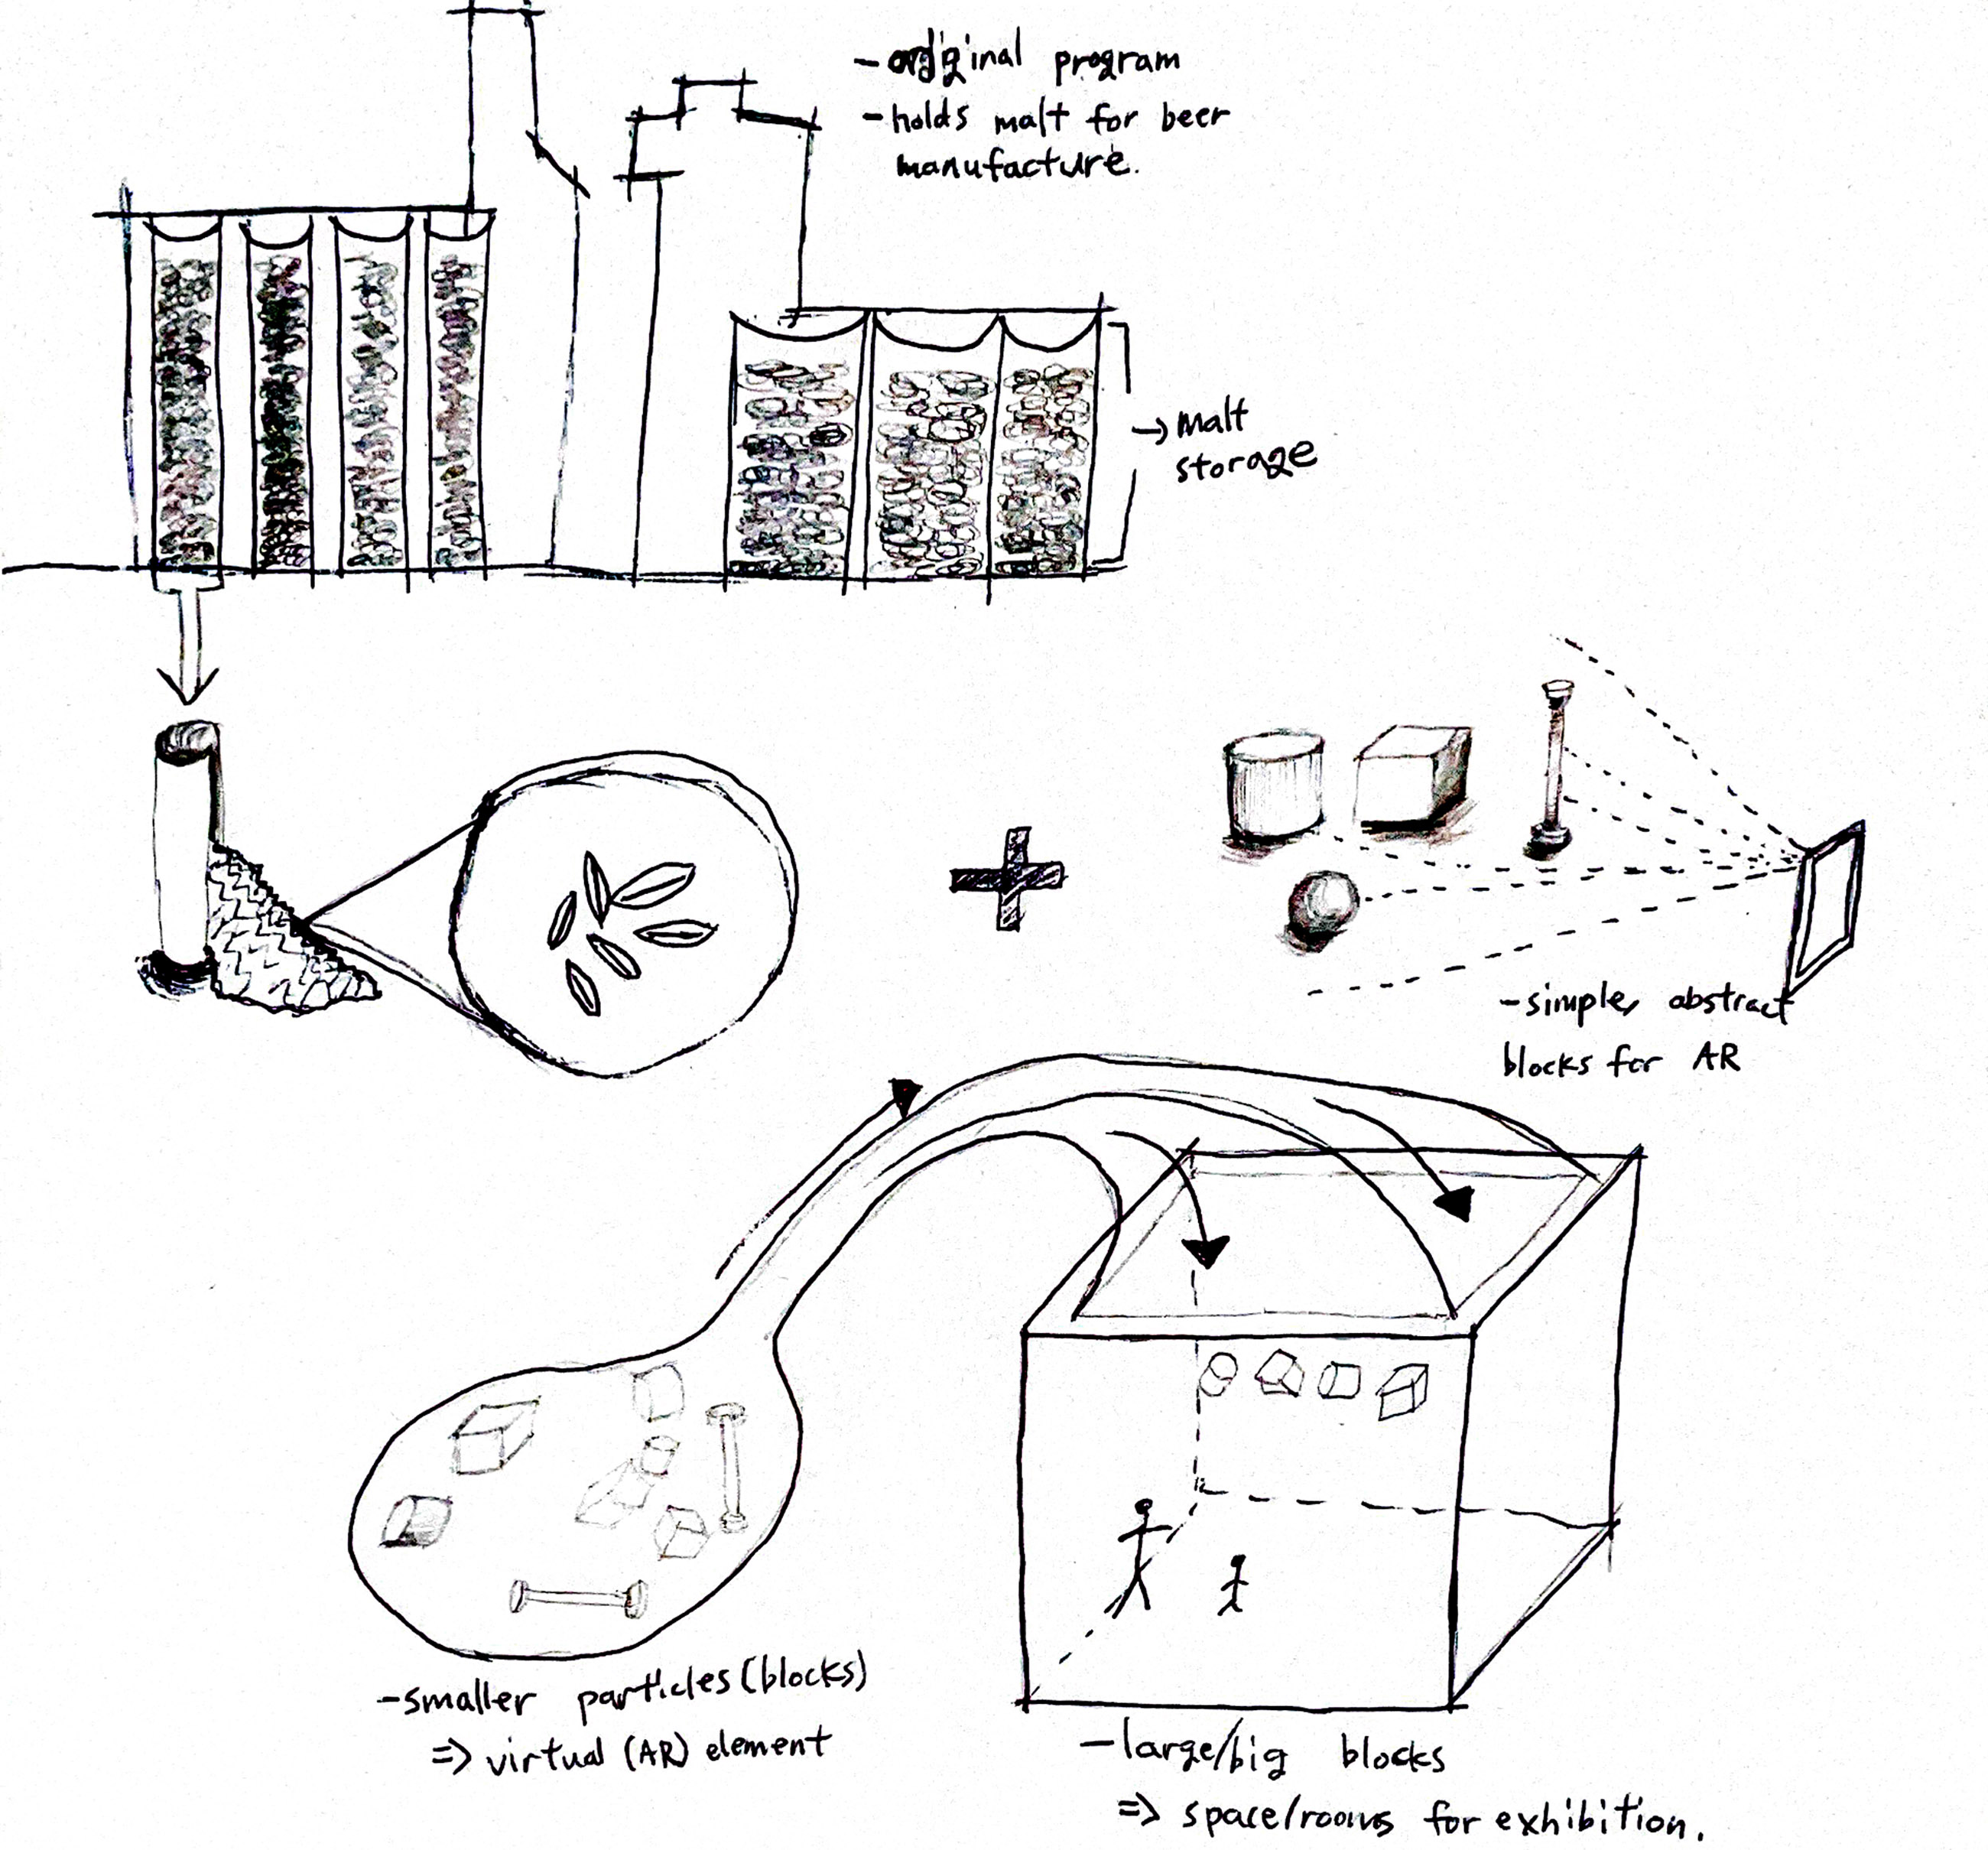 - original program
- holds malt for beer
manufacture.
→ Malt
storage
- simple, abstract
blocks for AR
- smaller particles (blocks)
⇒ virtual (AR) element
- large/big blocks
⇒ space/rooms for exhibition.